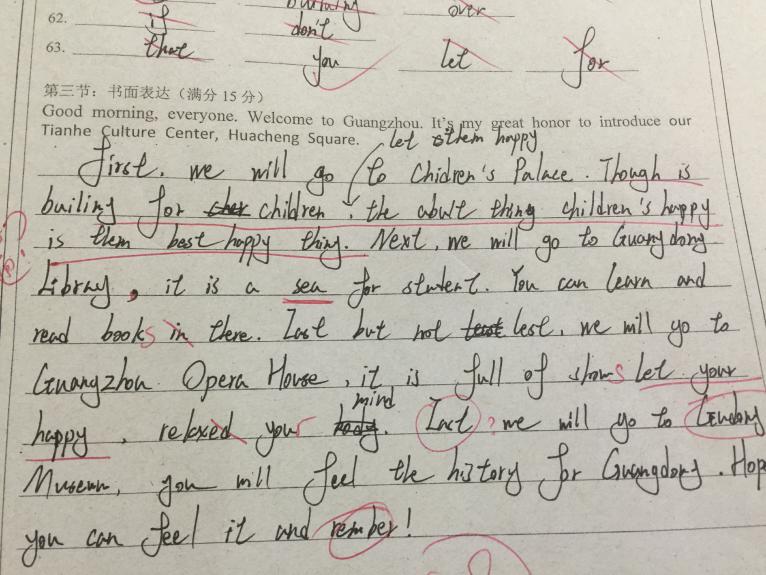 62. if don't over
63. that you let for
第三节：书面表达（满分 15 分）
Good morning, everyone. Welcome to Guangzhou. It's my great honor to introduce our
Tianhe Culture Center, Huacheng Square.
let them happy
First, we will go to Chidren's Palace. Though is
builing for children, the abult thing children's happy
is them best happy thing. Next, we will go to Guangdong
Libray, it is a sea for student. You can learn and
read books in there. Last but not lest, we will go to
Guangzhou Opera House, it is full of shows let your
mind
happy, relexed your body. Last ? we will go to
Museum, you will feel the history for Guangdong. Hop
you can feel it and rember!